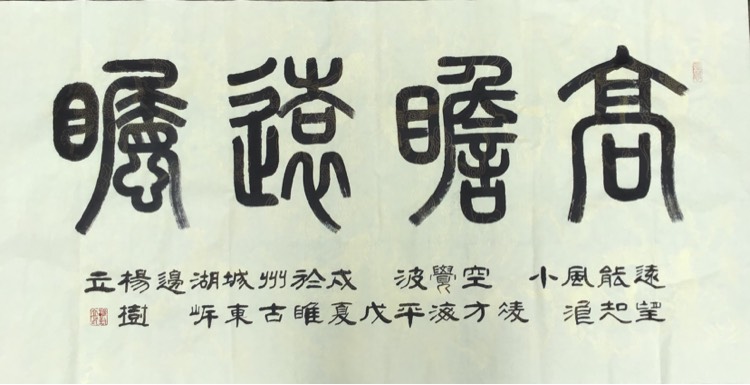 高瞻遠矚
遠望
能知
風浪
小
凌
空方
覺海
波平
戊
戌夏
於睢
州古
城東
湖畔
邊
楊樹
立